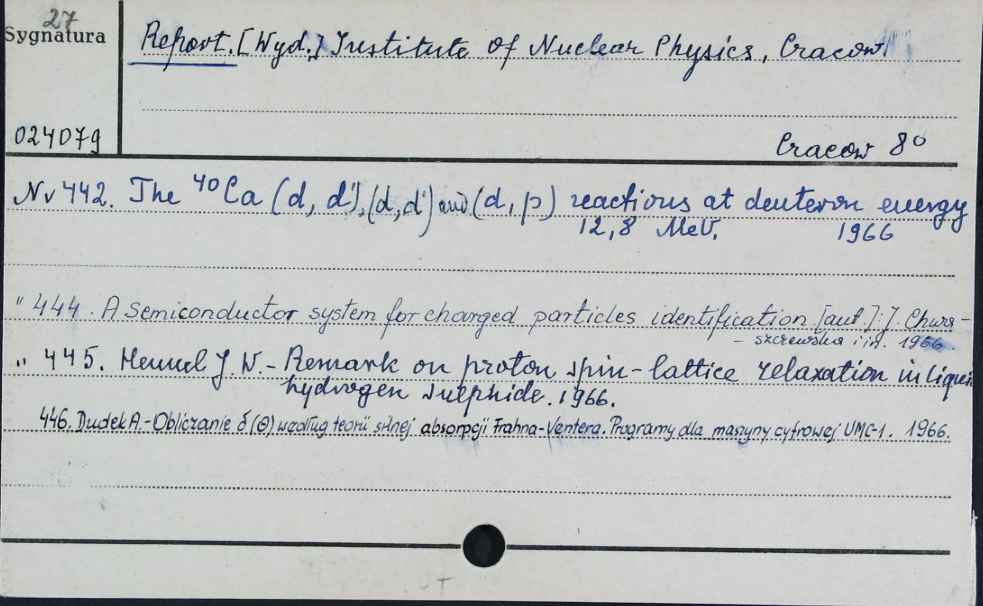 27
Sygnatura
Report. [Wyd.] Institute of Nuclear Physics, Cracow.
024079
Cracow 8°
Nr 442. The ⁴⁰Ca (d, d), (d,d') and (d, p) reactions at deuteron energy
12,8 MeV. 1966
" 444. A semiconductor system for charged particles identification [aut.]: J. Chwa-
- szczewska i in. 1966.
" 445. Hennel J. W. - Remark on proton spin-lattice relaxation in liquid
hydrogen sulphide. 1966.
446. Dudek A. - Obliczanie δ(Θ) według teorii silnej absorpcji Frahna-Ventera. Programy dla maszyny cyfrowej UMC-1. 1966.